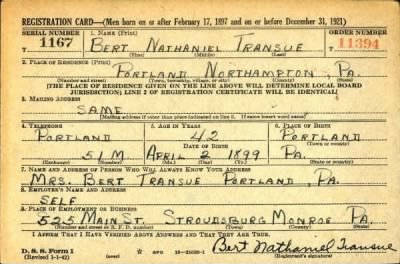 REGISTRATION CARD—(Men born on or after February 17, 1897 and on or before December 31, 1921)
SERIAL NUMBER 1. NAME (Print) ORDER NUMBER
1167 BERT NATHANIEL TRANSUE 11394
(First) (Middle) (Last)
2. PLACE OF RESIDENCE (Print)
PORTLAND NORTHAMPTON, PA.
(Number and street) (Town, township, village, or city) (County) (State)
[THE PLACE OF RESIDENCE GIVEN ON THE LINE ABOVE WILL DETERMINE LOCAL BOARD
JURISDICTION; LINE 2 OF REGISTRATION CERTIFICATE WILL BE IDENTICAL]
3. MAILING ADDRESS
SAME
[Mailing address if other than place indicated on line 2. If same insert word same]
4. TELEPHONE 5. AGE IN YEARS 6. PLACE OF BIRTH
PORTLAND 42 PORTLAND
DATE OF BIRTH (Town or county)
51M APRIL 2 1899 PA.
(Exchange) (Number) (Mo.) (Day) (Yr.) (State or country)
7. NAME AND ADDRESS OF PERSON WHO WILL ALWAYS KNOW YOUR ADDRESS
MRS. BERT TRANSUE PORTLAND PA.
8. EMPLOYER'S NAME AND ADDRESS
SELF
9. PLACE OF EMPLOYMENT OR BUSINESS
525 MAIN ST. STROUDSBURG MONROE PA
(Number and street or R. F. D. number) (Town) (County) (State)
I AFFIRM THAT I HAVE VERIFIED ABOVE ANSWERS AND THAT THEY ARE TRUE.
D. S. S. Form 1
(Revised 1-1-42) (over) GPO Bert Nathaniel Transue
(Registrant's signature)